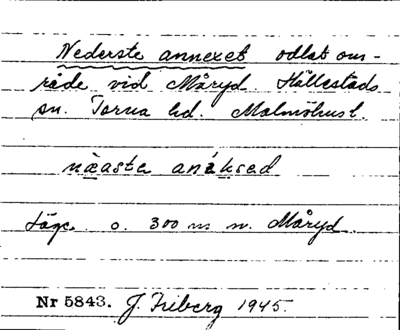 Nederste annexet odlat om-
råde vid Måryd. Hällestads
sn. Torna hd. Malmöhus l.
næasta anɛ́ksed
Läge. o. 300 m n. Måryd
Nr 5843. J. Friberg 1945.